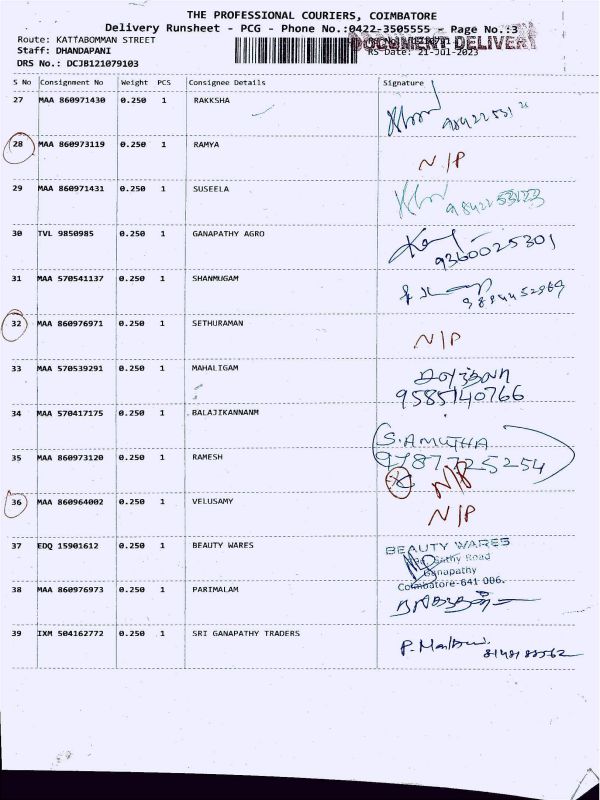 THE PROFESSIONAL COURIERS, COIMBATORE
Delivery Runsheet - PCG - Phone No.:0422-3505555 - Page No.:3
Route: KATTABOMMAN STREET
DOCUMENT DELIVERY
Staff: DHANDAPANI
RS Date: 21-Jul-2023
DRS No.: DCJB121079103
S No Consignment No Weight PCS Consignee Details Signature
27 MAA 860971430 0.250 1 RAKKSHA
28 MAA 860973119 0.250 1 RAMYA N/P
29 MAA 860971431 0.250 1 SUSEELA
30 TVL 9850985 0.250 1 GANAPATHY AGRO 9360025301
31 MAA 570541137 0.250 1 SHANMUGAM
32 MAA 860976971 0.250 1 SETHURAMAN N/P
33 MAA 570539291 0.250 1 MAHALIGAM
9585140766
34 MAA 570417175 0.250 1 BALAJIKANNANM
S.AMUTHA
35 MAA 860973120 0.250 1 RAMESH 9787725254
N/P
36 MAA 860964002 0.250 1 VELUSAMY N/P
37 EDQ 15901612 0.250 1 BEAUTY WARES BEAUTY WARES
Sathy Road
Ganapathy
Coimbatore-641 006.
38 MAA 860976973 0.250 1 PARIMALAM
39 IXM 504162772 0.250 1 SRI GANAPATHY TRADERS